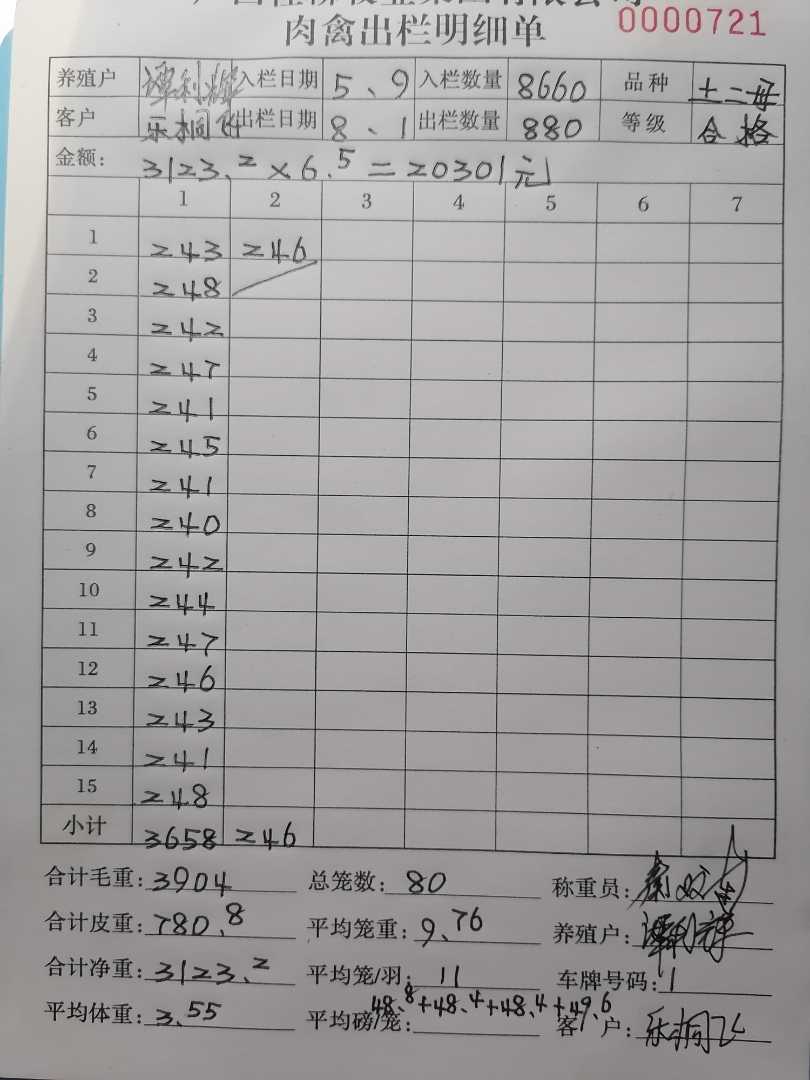 肉禽出栏明细单
0000721
养殖户 谭利辉 入栏日期 5、9 入栏数量 8660 品种 土二母
客户 乐桐飞 出栏日期 8、1 出栏数量 880 等级 合格
金额: 3123.2×6.5=20301元
1 2 3 4 5 6 7
1 243 246
2 248
3 242
4 247
5 241
6 245
7 241
8 240
9 242
10 244
11 247
12 246
13 243
14 241
15 248
小计 3658 246
合计毛重: 3904 总笼数: 80 称重员:
合计皮重: 780.8 平均笼重: 9.76 养殖户:
合计净重: 3123.2 平均笼/羽: 11 车牌号码: 1
平均体重: 3.55 平均磅/笼: 48.8+48.4+48.4+49.6 客户: 乐桐飞